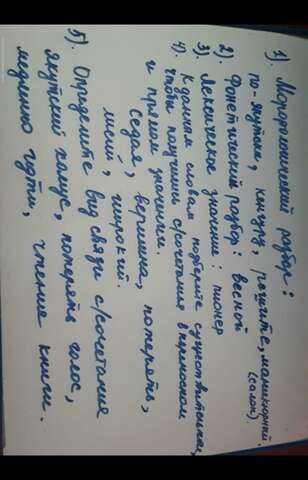 1) Морфологический разбор:
по-якутски, кенгуру, рычите, маникюрный.
(салон).
2) Фонетический разбор: весной
3) Лексическое значение: пионер
4) К данным словам подберите существительные,
чтобы получились с/сочетания в переносном
и прямом значении.
Седая, вершина, потерять,
широкий.
5) Определите вид связи с/сочетания
якутский хомус, потерять голос,
медленно идти, чтение книги.